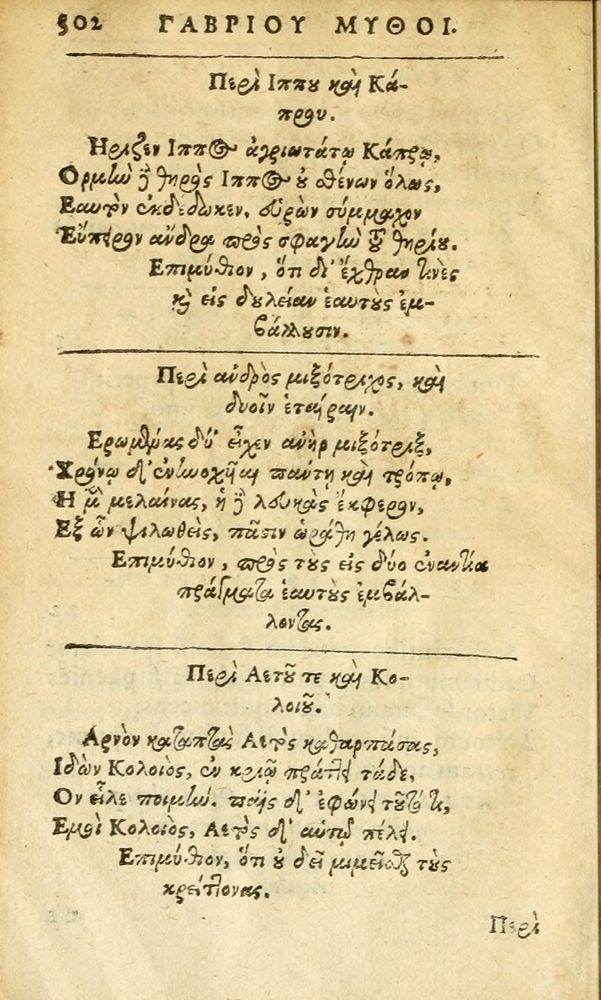 502 ΓΑΒΡΙΟΥ ΜΥΘΟΙ.
Περὶ Ιππου καὶ Κά-
πρου.
Ηριζεν Ιππος ἀγριωτάτῳ Κάπρῳ,
Ορμὴν δὲ θηρὸς Ιππος οὐ σθένων ὅλως,
Εαυτὸν ἐκδέδωκεν, εὑρὼν σύμμαχον
Εὔπειρον ἄνδρα πρὸς σφαγὴν τοῦ θηρίου.
Επιμύθιον, ὅτι δι' ἔχθραν τινὲς
καὶ εἰς δουλείαν ἑαυτοὺς ἐμ-
βάλλουσιν.
Περὶ ανδρὸς μιξότριχος, καὶ
δυοῖν ἑταίραιν.
Ερωμένας δύ' εἶχεν ανὴρ μιξότριξ,
Χρόνῳ δ' ἐνιωχῆσαι παύτη καὶ τρόπῳ,
Η μὲν μελαίνας, ἡ δὲ λευκὰς ἐκφερον,
Εξ ὧν ψιλωθεὶς, πᾶσιν ὡράθη γέλως.
Επιμύθιον, πρὸς τοὺς εἰς δύο ἐναντία
πράγματα ἑαυτοὺς ἐμβάλ-
λοντας.
Περὶ Αετοῦ τε καὶ Κο-
λοιοῦ.
Αρνὸν καταπτὰς Αετὸς καθαρπάσας,
Ιδὼν Κολοιὸς, ἐν κριῷ πράττει τάδε,
Ον εἷλε ποιμήν. παῖς δ' ἐφώνει τοῦτό τι,
Εμοὶ Κολοιὸς, Αετὸς δ' αὑτῷ πέλει.
Επιμύθιον, ὅτι οὐ δεῖ μιμεῖσθαι τοὺς
κρείττονας.
Περὶ